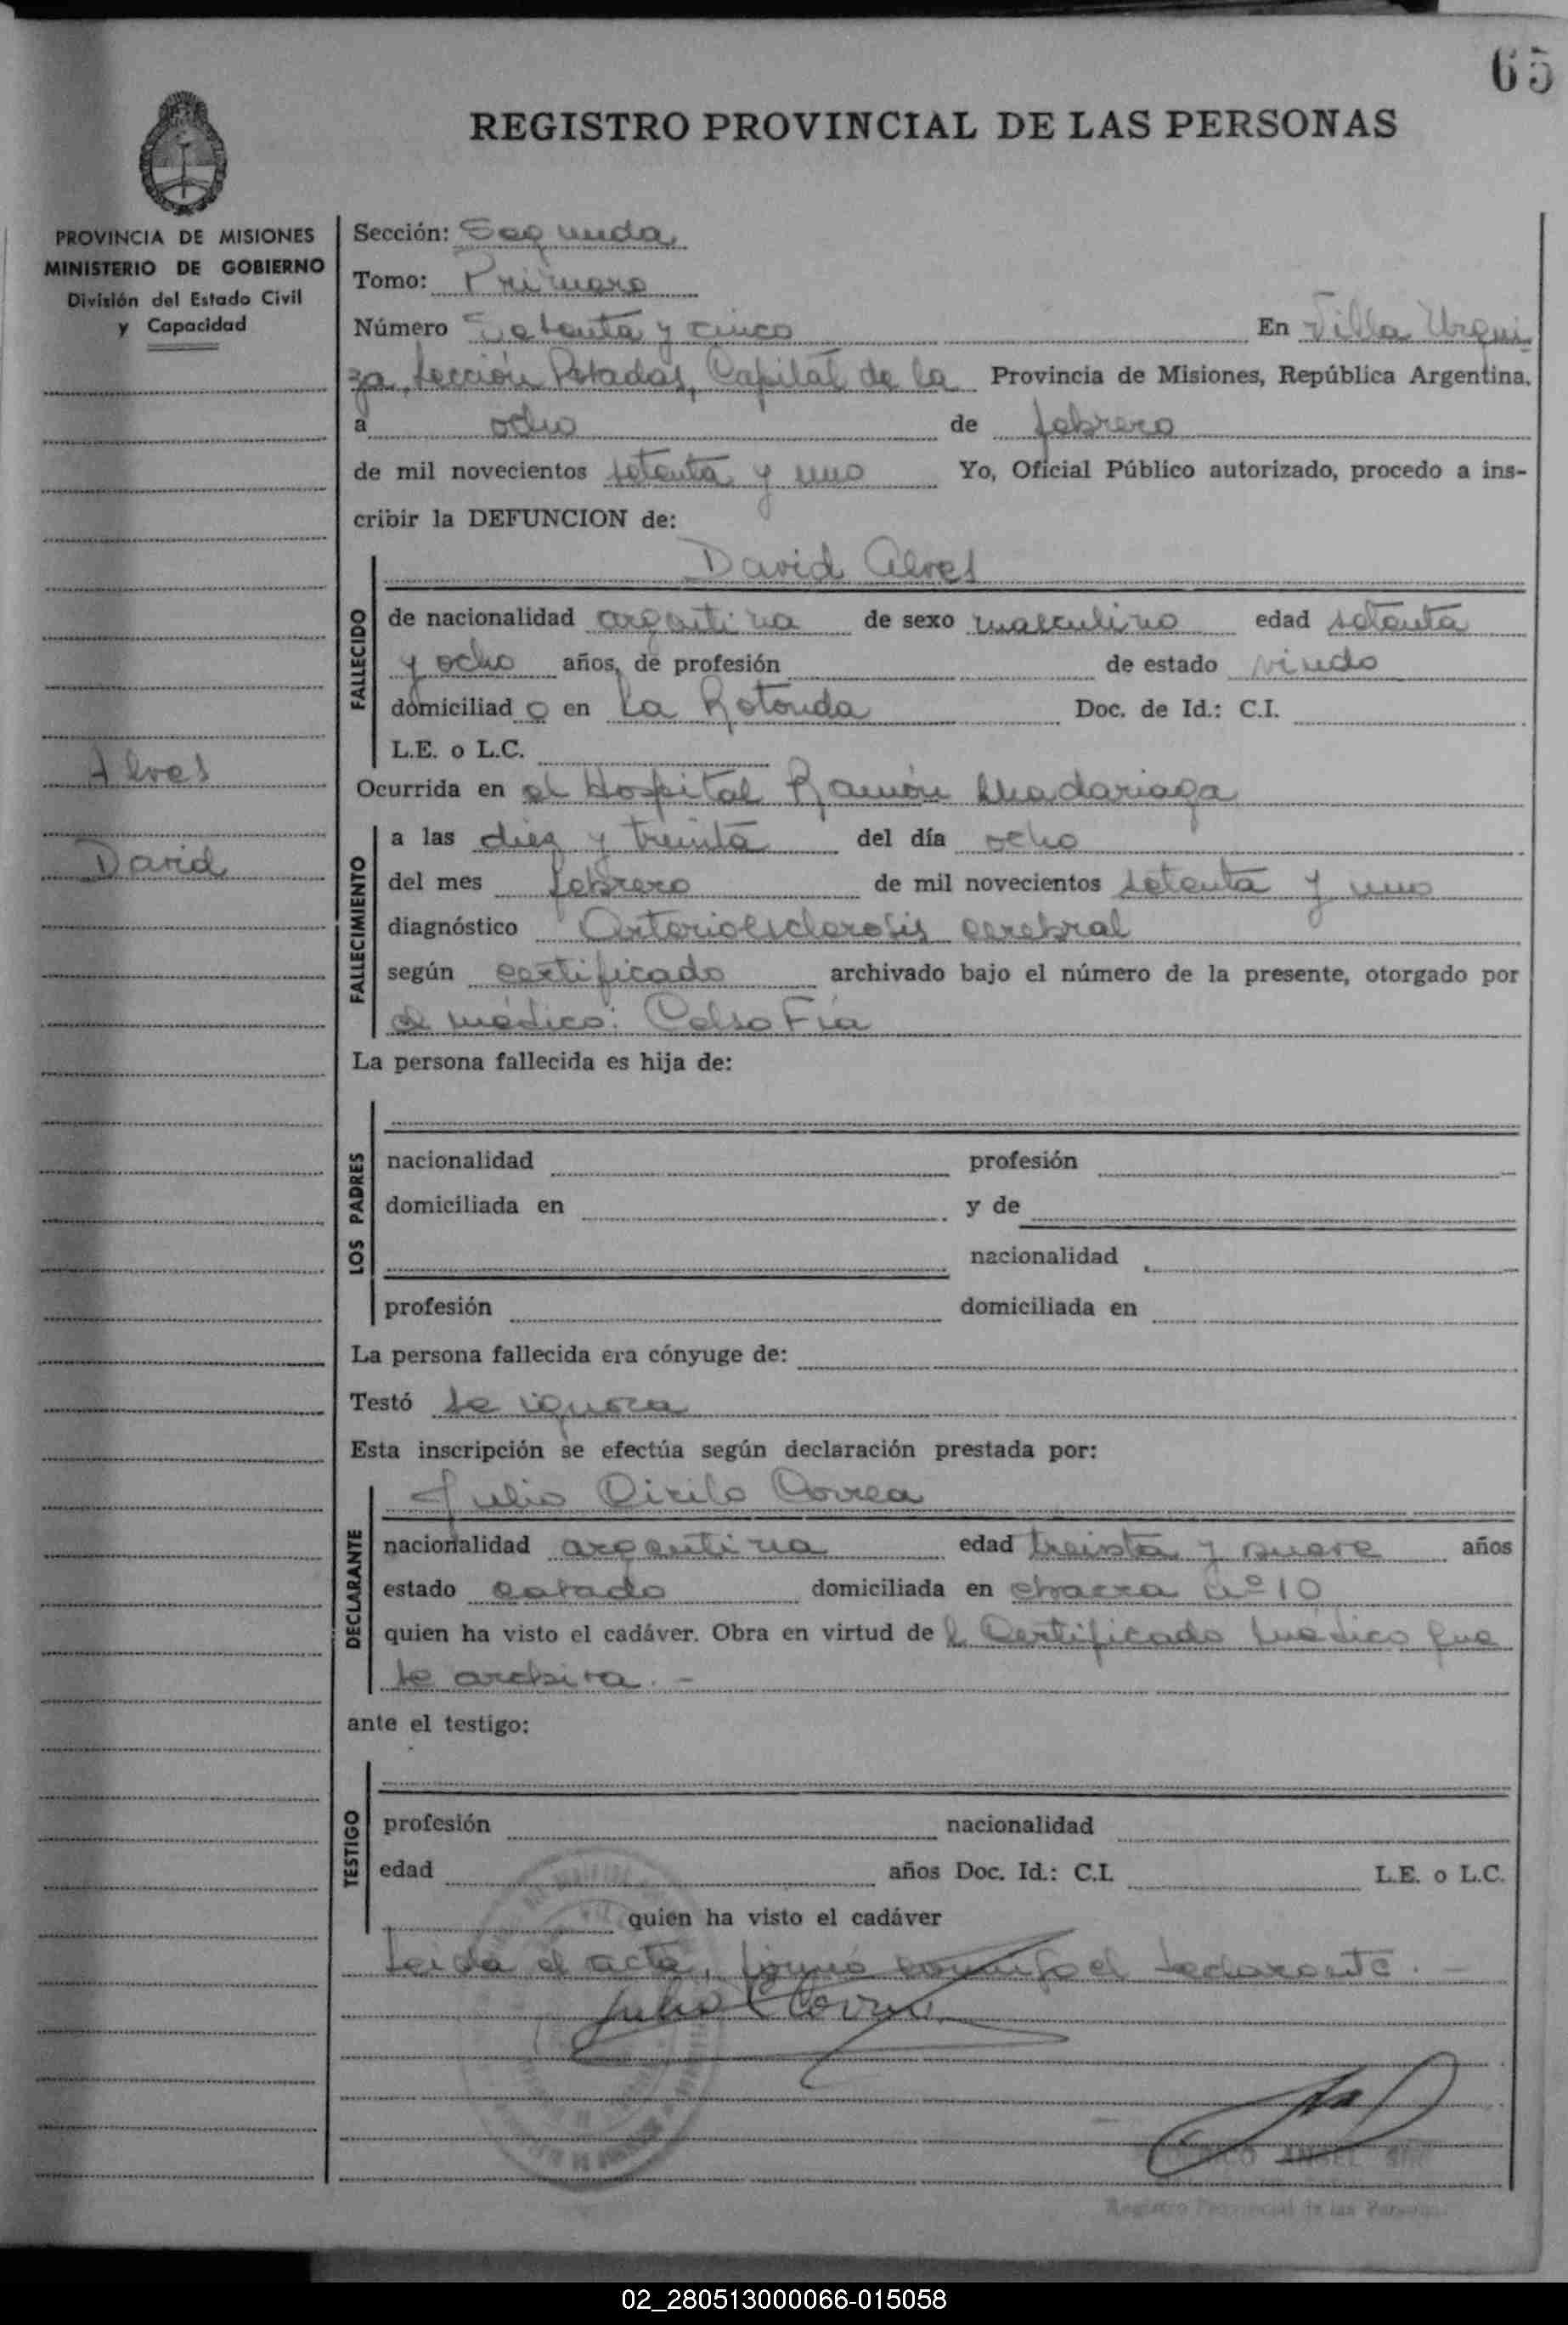 65
REGISTRO PROVINCIAL DE LAS PERSONAS
PROVINCIA DE MISIONES
MINISTERIO DE GOBIERNO
División del Estado Civil
y Capacidad
Alves
David
Sección: Segunda
Tomo: Primero
Número Setenta y cinco En Villa Urqui-
za, Sección Posadas, Capital de la Provincia de Misiones, República Argentina,
a ocho de febrero
de mil novecientos setenta y uno Yo, Oficial Público autorizado, procedo a ins-
cribir la DEFUNCION de:
FALLECIDO
David Alves
de nacionalidad argentina de sexo masculino edad setenta
y ocho años, de profesión de estado viudo
domiciliad o en La Rotonda Doc. de Id.: C.I.
L.E. o L.C.
Ocurrida en el Hospital Ramón Madariaga
FALLECIMIENTO
a las diez y treinta del día ocho
del mes febrero de mil novecientos setenta y uno
diagnóstico Arterioesclerosis cerebral
según certificado archivado bajo el número de la presente, otorgado por
el médico: Celso Fia
La persona fallecida es hija de:
LOS PADRES
nacionalidad profesión
domiciliada en y de
nacionalidad
profesión domiciliada en
La persona fallecida era cónyuge de:
Testó se ignora
Esta inscripción se efectúa según declaración prestada por:
DECLARANTE
Julio Cirilo Correa
nacionalidad argentina edad treinta y nueve años
estado casado domiciliada en chacra nº 10
quien ha visto el cadáver. Obra en virtud de l Certificado médico que
se archiva. -
ante el testigo:
TESTIGO
profesión nacionalidad
edad años Doc. Id.: C.I. L.E. o L.C.
quien ha visto el cadáver
Leida el acta, firmó conmigo el declarante. -
Julio C Correa
ANGEL
Registro Provincial de las Personas
02_280513000066-015058